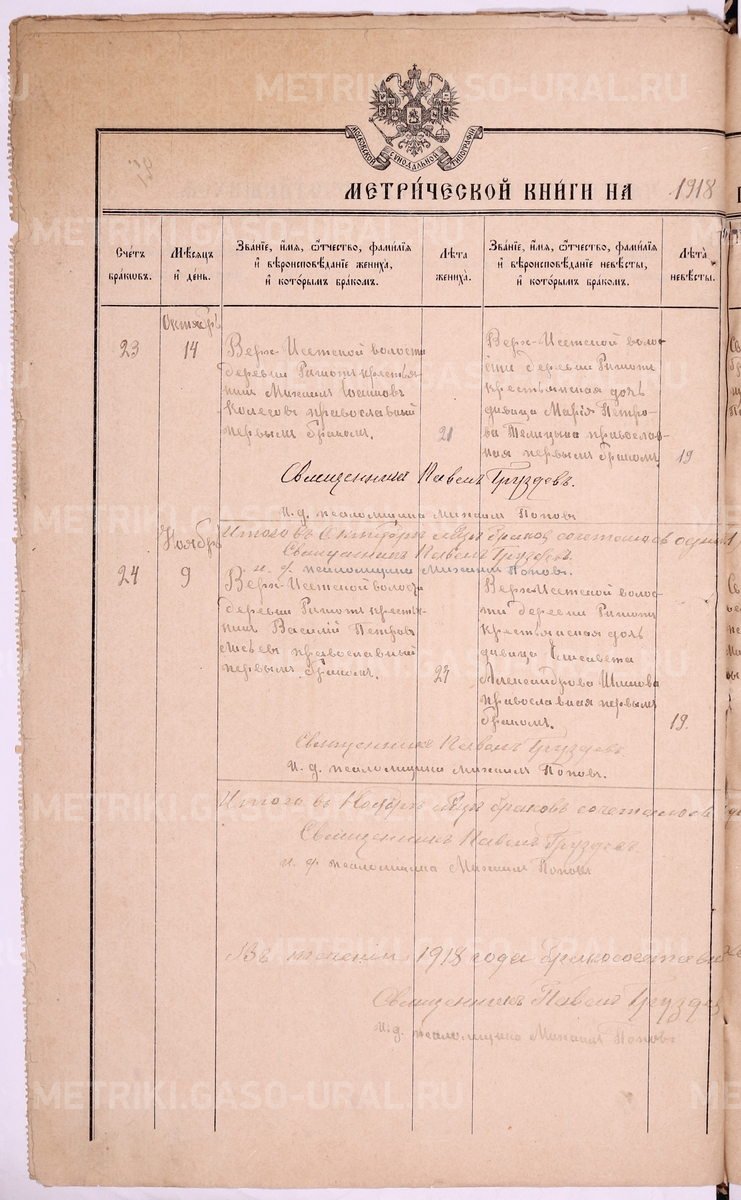 МОСКОВСКОЙ СѴНОДАЛЬНОЙ ТИПОГРАФІИ
МЕТРИ́ЧЕСКОЙ КНИ́ГИ НА 1918
Сче́тъ бра́кωвъ.
Мѣ́сѧцъ и҆ де́нь.
Зва́нїе, и҆́мѧ, ѻ҆́тчество, фамилі́ѧ
и҆ вѣроисповѣ́данїе жениха̀,
и҆ кото́рымъ бра́комъ.
Лѣ́та жениха̀.
Зва́нїе, и҆́мѧ, ѻ҆́тчество, фамилі́ѧ
и҆ вѣроисповѣ́данїе невѣ́сты,
и҆ кото́рымъ бра́комъ.
Лѣ́та невѣ́сты.
Октябрь
23
14
Верх-Исетской волости
деревни
крестья-
нинъ Михаилъ
Колесовъ православный
первымъ бракомъ.
21
Верх-Исетской воло-
сти деревни
крестьянская дочь
дѣвица Марія Петро-
ва Телицына православ-
ная первымъ бракомъ.
19
Священникъ Павелъ Груздевъ.
И. д. псаломщика Михаилъ Поповъ
Итого въ Октябрѣ м-цѣ браковъ сочеталось одинъ
Священникъ Павелъ Груздевъ.
и. д. псаломщика Михаилъ Поповъ.
Ноябрь
24
9
Верх-Исетской волости
деревни
кресть-
нинъ Василій Петровъ
православный
первымъ бракомъ.
27
Верх-Исетской воло-
сти деревни
крестьянская дочь
дѣвица Елисавета
Александрова
православная первымъ
бракомъ.
19.
Священникъ Павелъ Груздевъ.
И. д. псаломщика Михаилъ Поповъ.
Итого въ Ноябрѣ м-цѣ браковъ сочеталось
Священникъ Павелъ Груздевъ.
и. д. псаломщика Михаилъ Поповъ
Въ теченіи 1918 года
Священникъ Павелъ Груздев
И. д. псаломщика Михаилъ Поповъ
METRIKI.GASO-URAL.RU